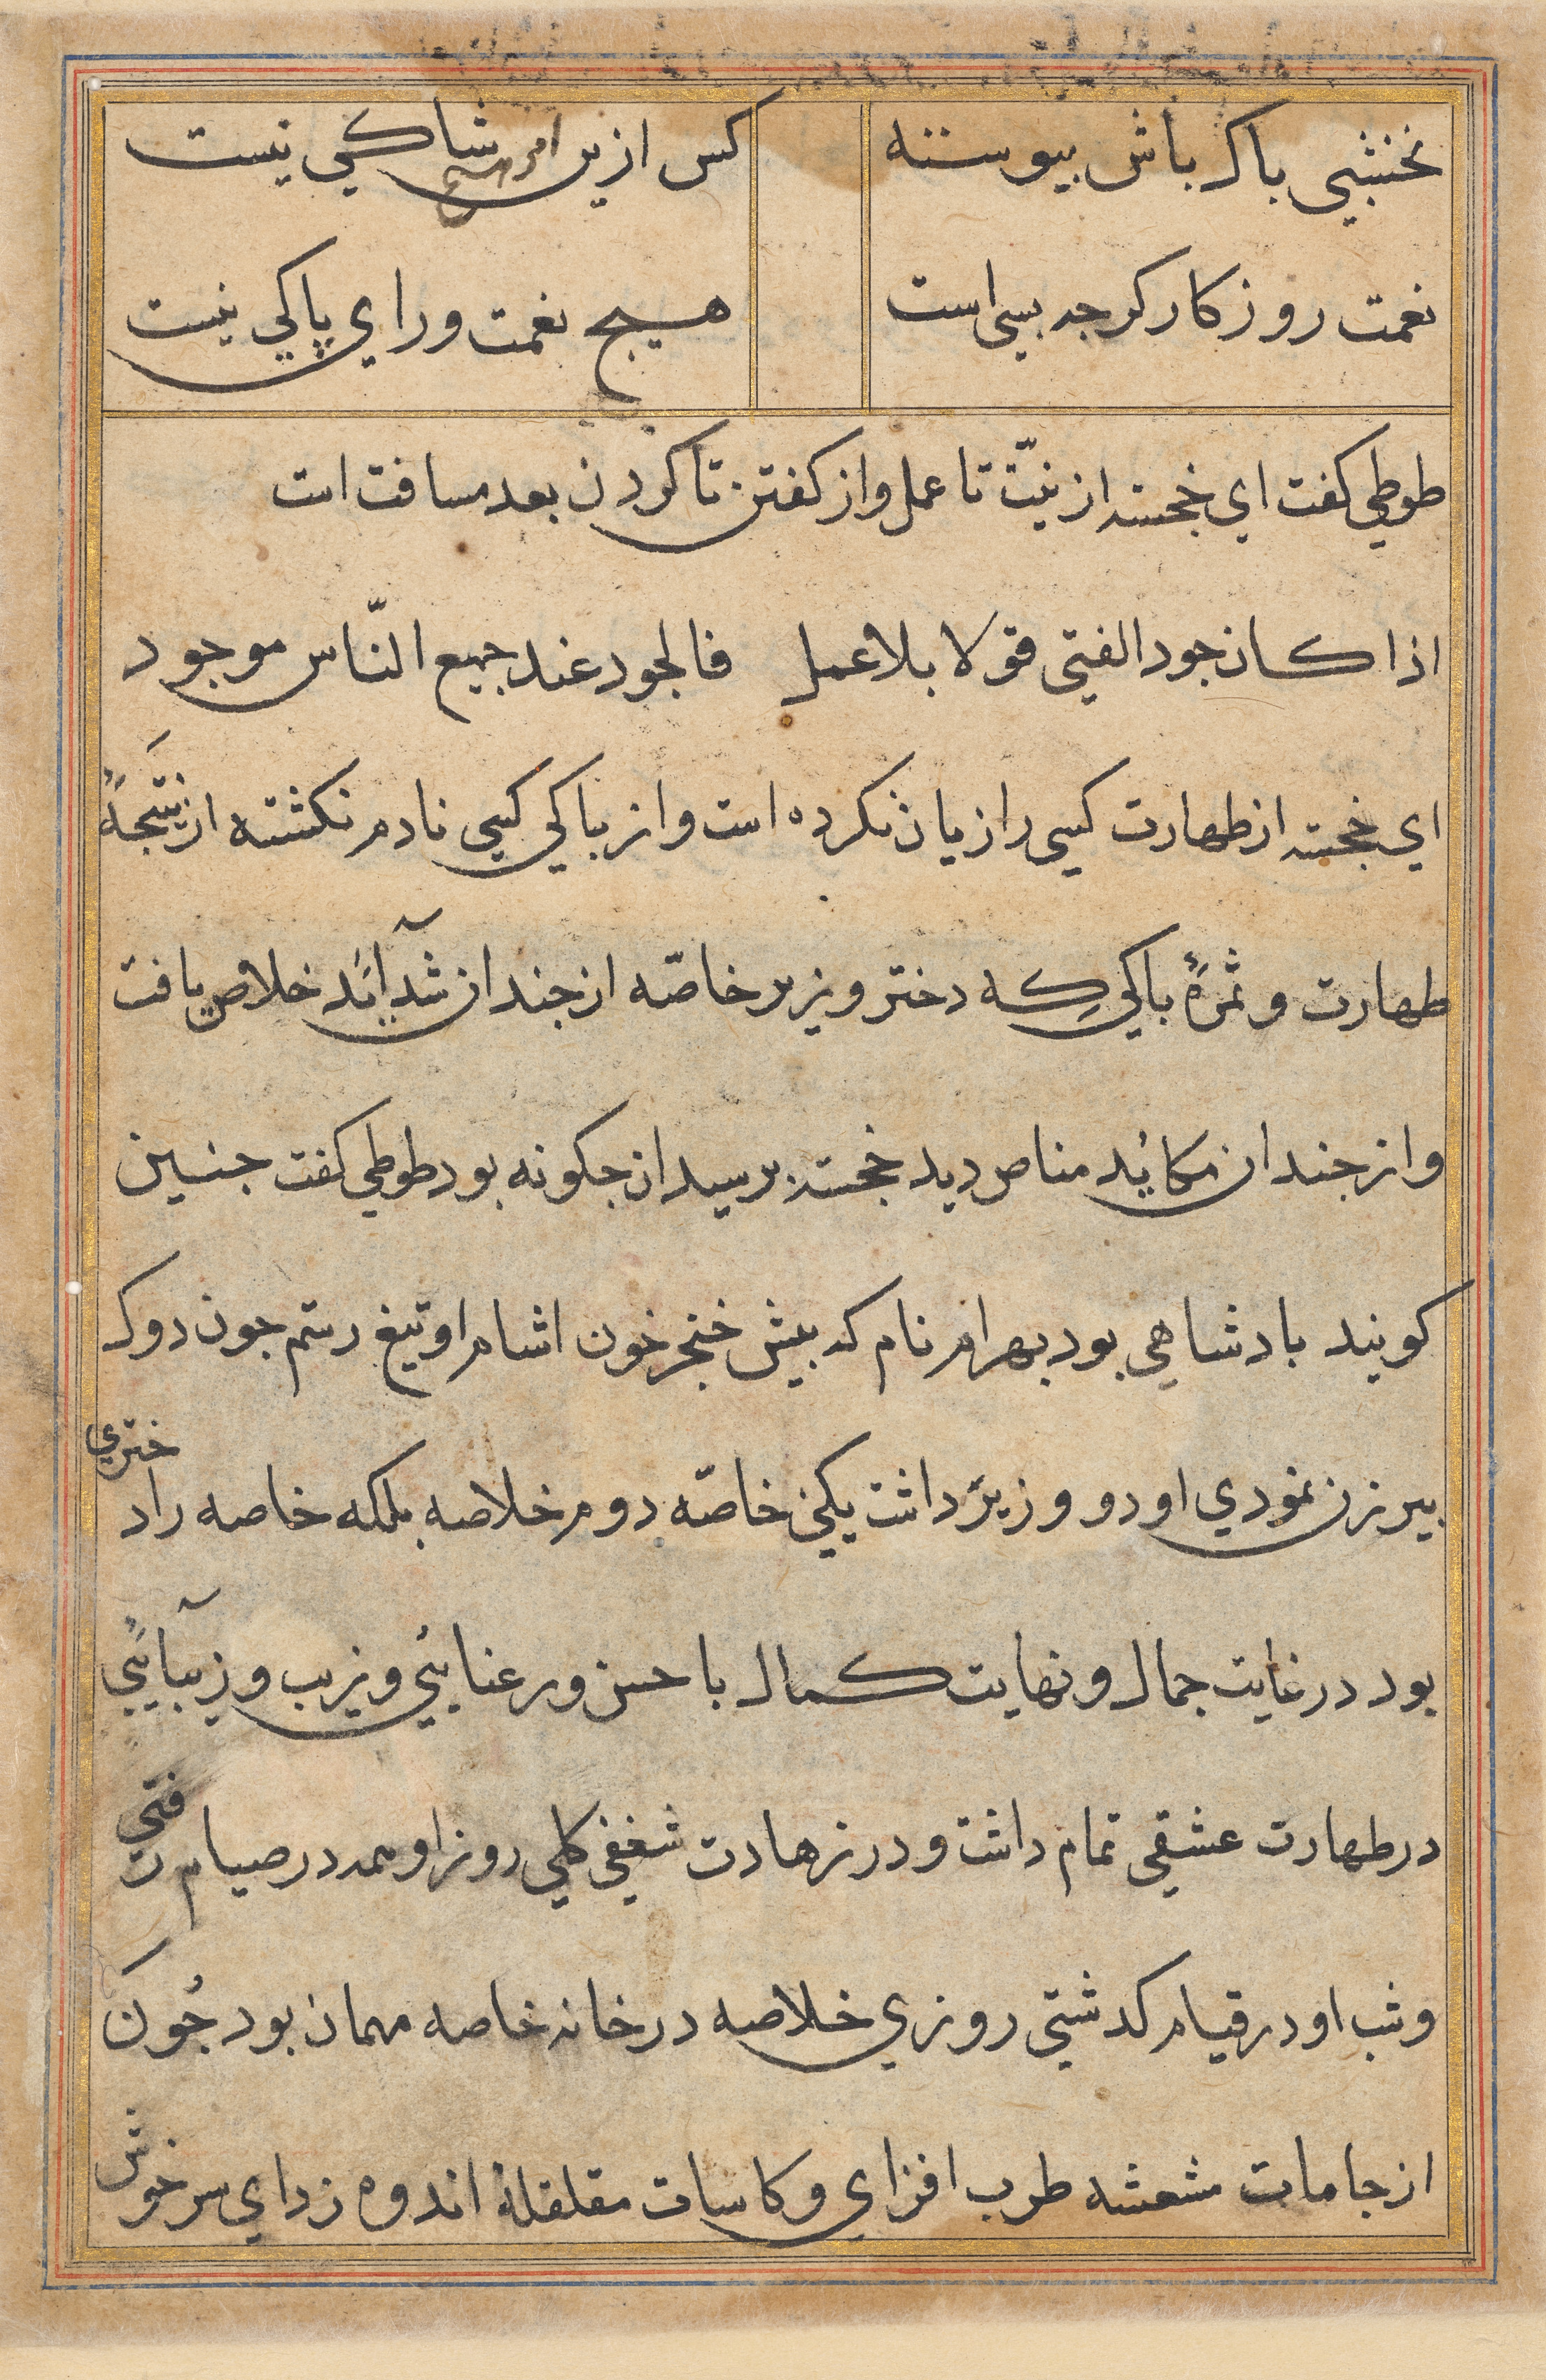 نخشبي باك باش بيوسته کس ازين امر شاكي نيست
نعمت روزکار کرجه بسي است هيج نعمت وراي پاکي نيست
طوطي کفت اي خجسته از نيّت تا عمل و از کفتن تا کردن بعد مسافت است
اذا کان جود الفتى قولا بلا عمل فالجود عند جميع النّاس موجود
اي خجسته از طهارت کسي را زيان نکرده است و از باکي کسي نادم نکشته از نتيَجهٔ
طهارت و ثمرهٔ باکي کِه دختر وزير خاصّه از جندان شدآئد خلاص يافت
و از جندان مکائد مناص ديد خجسته برسيد ان جکونه بود طوطي کفت جنين
کويند بادشاهي بود بهرام نام که بيش خنجر خون اشام او تيغ رستم جون دوک
بيرزن نمودي او دو وزير داشت يکي خاصّه دوم خلاصه بلکه خاصه را دختري
بود در غايت جمال و نهايت کمال با حسن و رعنايئي و زيب و زيبآيئي
در طهارت عشقي تمام داشت و در زهادت شغفي کلي روز او همه در صيام رفتي
و شب او در قيام کدشتي روزي خلاصه در خانه خاصه مهمان بود جُون
از جامات مشعشه طرب افزاي و کاسات مقلقلهٔ اندوه زداي سرخوش